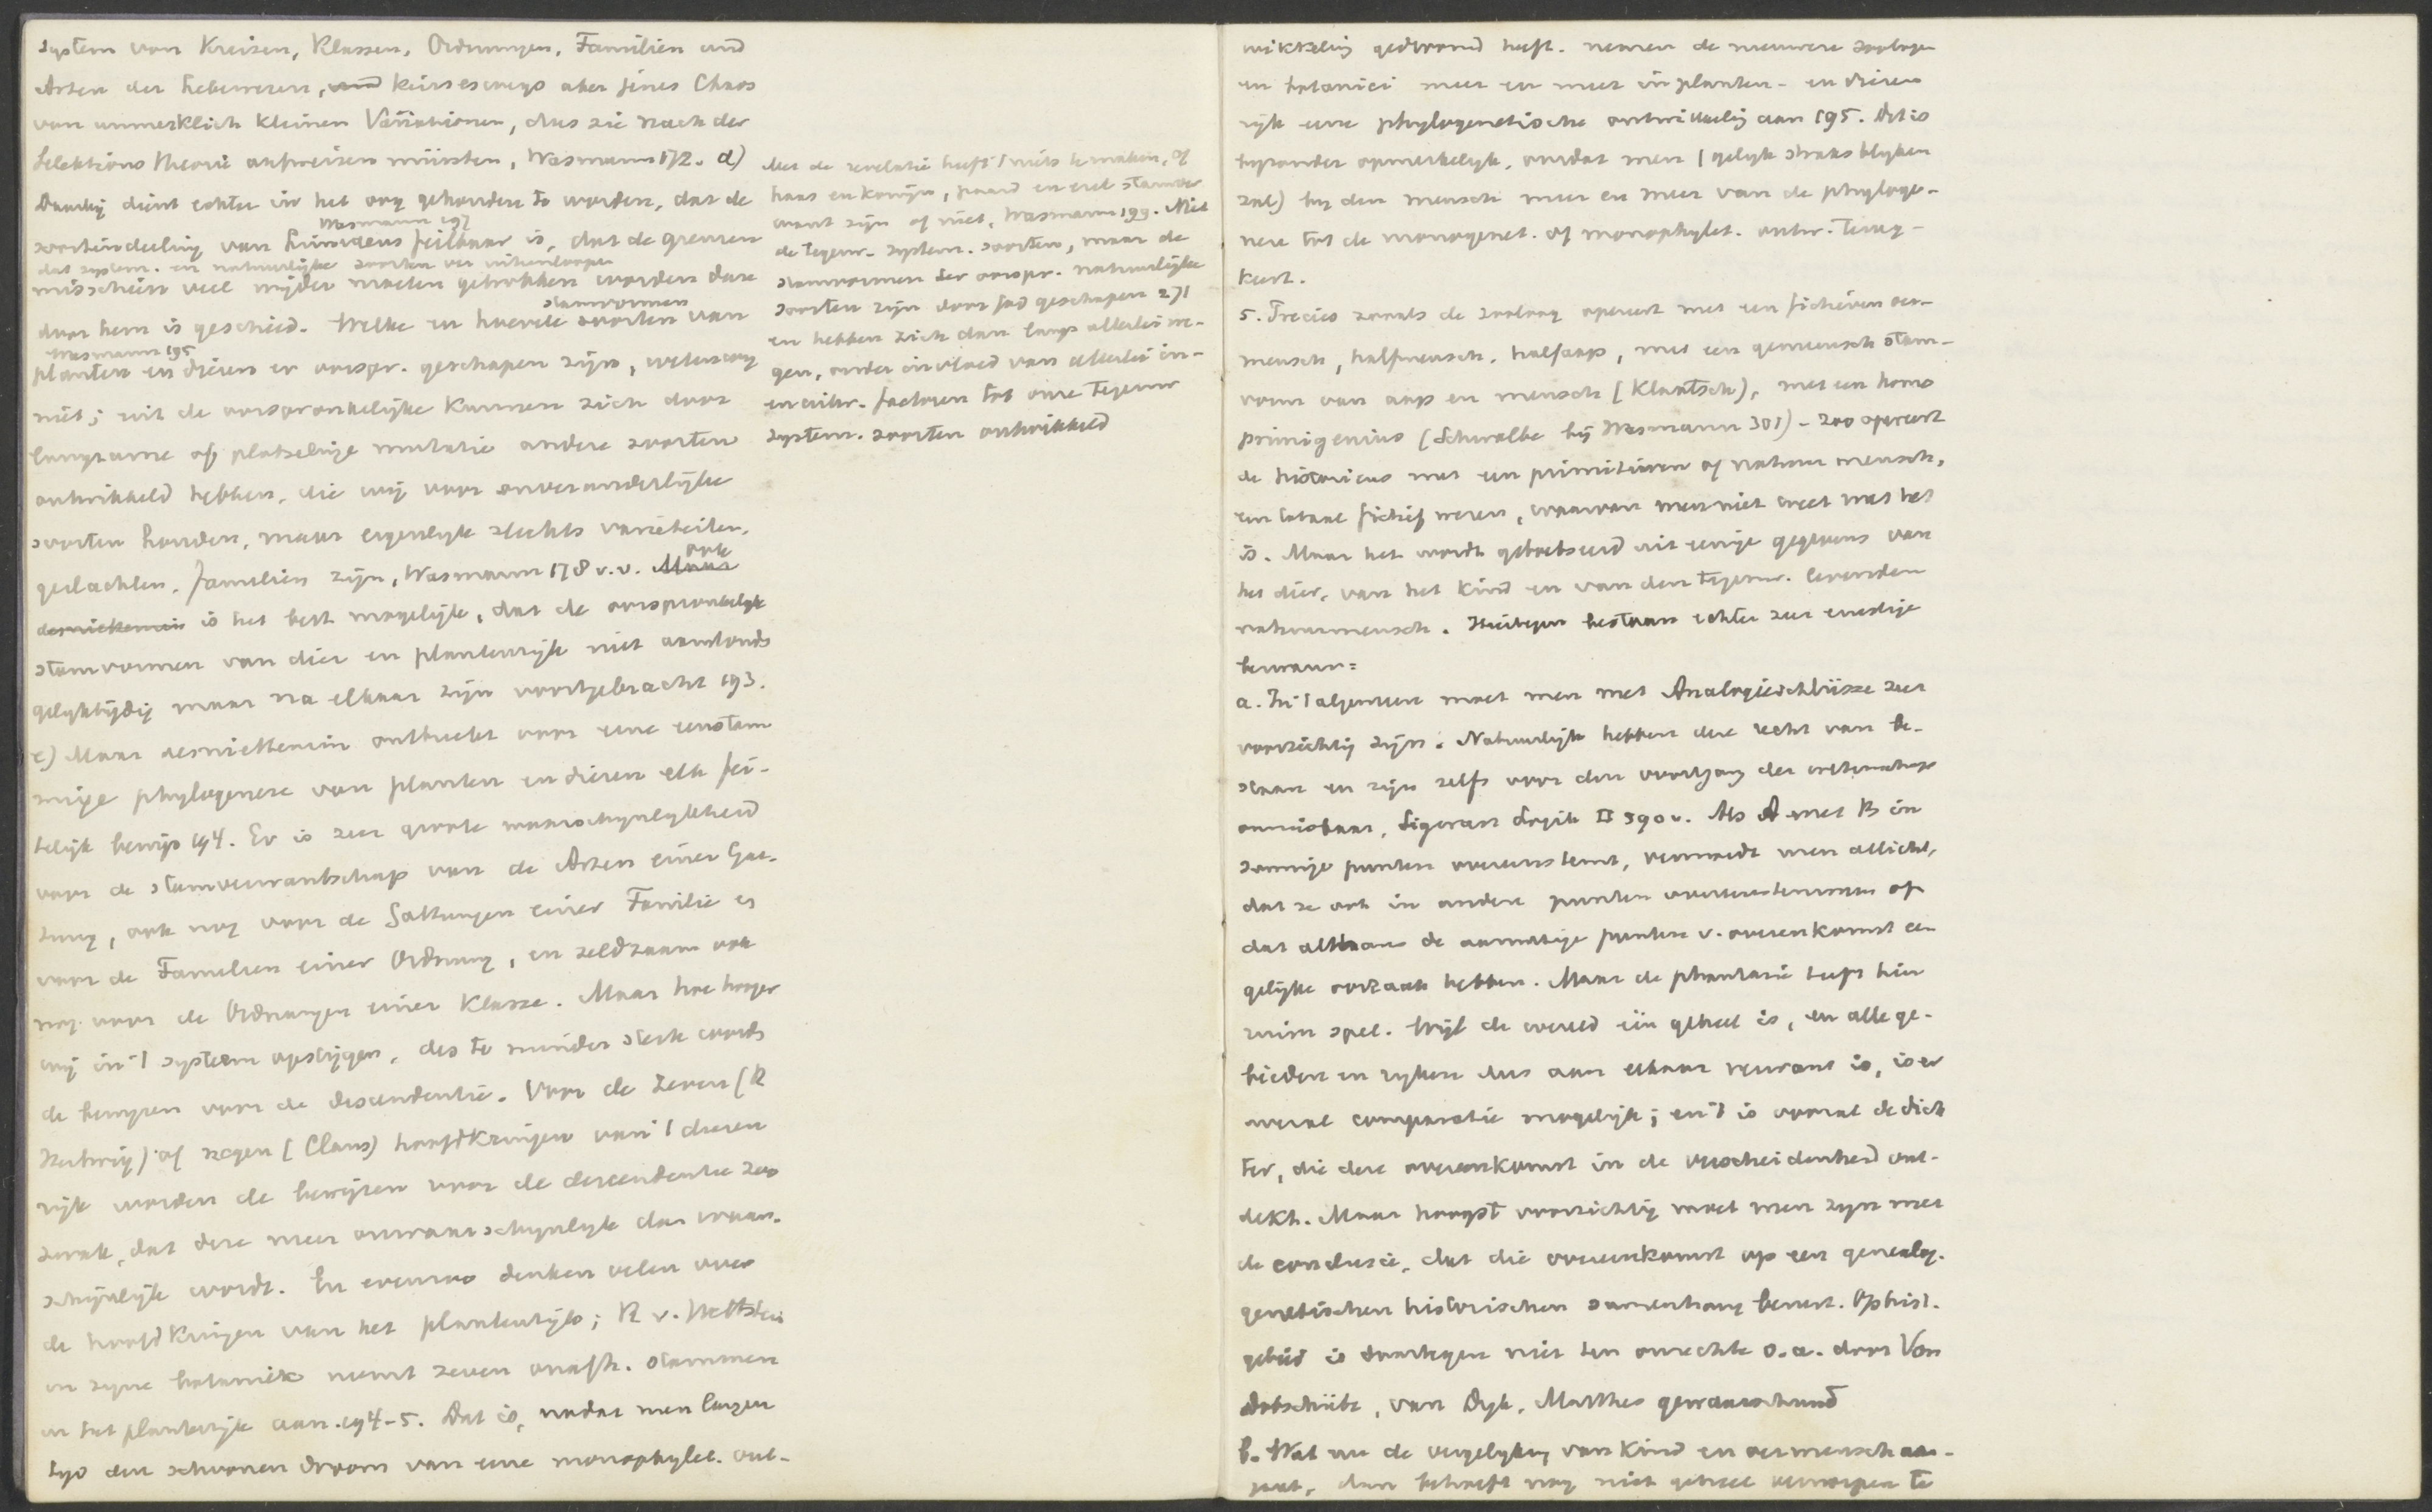 system von Kreisen, Klassen, Ordnungen, Familien und
Arten der Lebewesen, und keineswegs aber jenes Chaos
von unmerklich kleinen Variationen, das sie nach der
Selektions theorie aufweisen müssten, Wasmann 172. d)
Daarbij dient echter in het oog gehouden te worden, dat de
Wasmann 197
soortindeeling van Linnaeus feilbaar is, dat de grenzen
dat system. en natuurlijke soorten ver uiteenloopen
misschien veel wijder moeten getrokken worden dan
door hem is geschied. Welke en hoevele soorten van
stamvormen
Wasmann 195
planten en dieren er oorspr. geschapen zijn, weten wij
niet; uit de oorspronkelijke kunnen zich door
langzame of plotselinge mutatie andere soorten
ontwikkeld hebben, die wij voor onveranderlijke
soorten houden, maar eigenlijk slechts varieteiten,
geslachten, familien zijn, Wasmann 178 v.v. Maar
ook
desniettemin is het best mogelijk, dat de oorspronkelijke
stamvormen van dier en plantenrijk niet aanstonds
gelijktijdig maar na elkaar zijn voortgebracht 193.
e) Maar desniettemin ontbreekt voor eene eenstam
mige phylogenese van planten en dieren elk fei-
telijk bewijs 194. Er is zeer groote waarschijnlijkheid
voor de stamverwantschap van de Arten einer Gat-
tung, ook nog voor de Gattungen einer Familie en
voor de Familien einer Ordnung, en zeldzaam ook
nog voor de Ordnungen einer Klasse. Maar hoe hooger
wij in 't systeem opstijgen, des te minder sterk wordt
de bewijzen voor de descendentie. Voor de zeven (R
Hertwig) of negen (Claus) hoofdkringen van 't dieren
rijk worden de bewijzen voor de descendentie zoo
zwak, dat deze meer onwaarschijnlijk dan waar-
schijnlijk wordt. En evenzoo denken velen over
de hoofdkringen van het plantenrijk; R v. Wettstein
in zijne botanik neemt zeven onafh. stammen
in het plantenrijk aan. 194-5. Dat is, nadat men langen
tijd den schoonen droom van eene monophylet. ont-
Met de revelatie heeft 't niets te maken, of
haas en konijn, paard en ezel stamver
want zijn of niet, Wasmann 199. Niet
de tegenw. system. soorten, maar de
stamvormen der oorspr. natuurlijke
soorten zijn door God geschapen 271
en hebben zich dan langs allerlei we-
gen, onder invloed van allerlei in-
en uitw. factoren tot onze tegenw
system. soorten ontwikkeld
wikkeling gedroomd heeft. nemen de nieuwere zoologen
en botanici meer en meer in planten- en dieren
rijk eene phylogenetische ontwikkeling aan 195. Dit is
bijzonder opmerkelijk, omdat men (gelijk straks blijken
zal) bij den mensch meer en meer van de phyloge-
nese tot de monogenet. of monophylet. ontw. terug-
keert.
5. Precies zooals de zoöloog opereert met een fictieven oer-
mensch, halfmensch, halfaap, met een gemeensch stam-
vorm van aap en mensch (Klaatsch), met een homo
primigenius (Schwalbe bij Wasmann 301) - zoo opereert
de historicus met een primitieven of natuur mensch,
een totaal fictief wezen, waarvan men niet weet wat het
is. Maar het wordt geboetseerd uit eenige gegevens van
het dier, van het kind en van den tegenw. levenden
natuurmensch. Hiertegen bestaan echter zeer ernstige
bezwaren:
a. In 't algemeen moet men met Analogieschlüsse zeer
voorzichtig zijn. Natuurlijk hebben deze recht van be-
staan en zijn zelfs voor den voortgang der wetenschap
onmisbaar, Sigwart Logik II 390 v. Als A met B in
sommige punten overeenstemt, vermoedt men allicht,
dat ze ook in andere punten overeenstemmen of
dat althans de aanwezige punten v. overeenkomst een
gelijke oorzaak hebben. Maar de phantasie heeft hier
ruim spel. Wijl de wereld één geheel is, en alle ge-
bieden en rijken dus aan elkaar verwant is, is er
overal comparatie mogelijk; en 't is vooral de dich
ter, die deze overeenkomst in de verscheidenheid ont-
dekt. Maar hoogst voorzichtig moet men zijn met
de conclusie, dat die overeenkomst op een genealog.
genetischen historischen samenhang berust. Op hist.
gebied is daartegen niet ten onrechte o.a. door Von
Dobschütz, van Dijk, Matthes gewaarschuwd
b. Wat nu de vergelijking van kind en oermensch aan-
gaat, dan behoeft nog niet geheel verworpen te